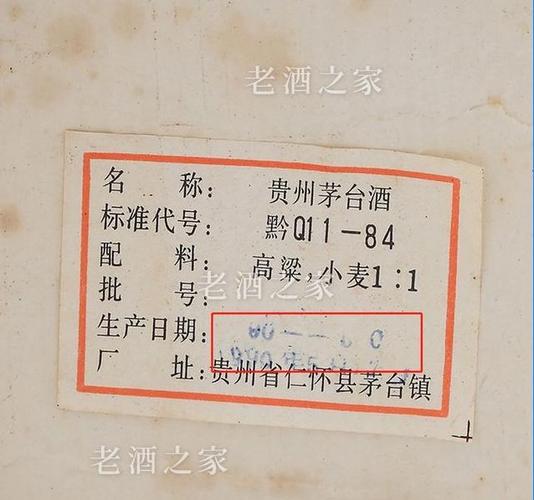 老酒之家
名称：贵州茅台酒
标准代号：黔Q11-84
配料：高粱,小麦1:1
老酒之家
批号：
生产日期：
厂址：贵州省仁怀县茅台镇
老酒之家